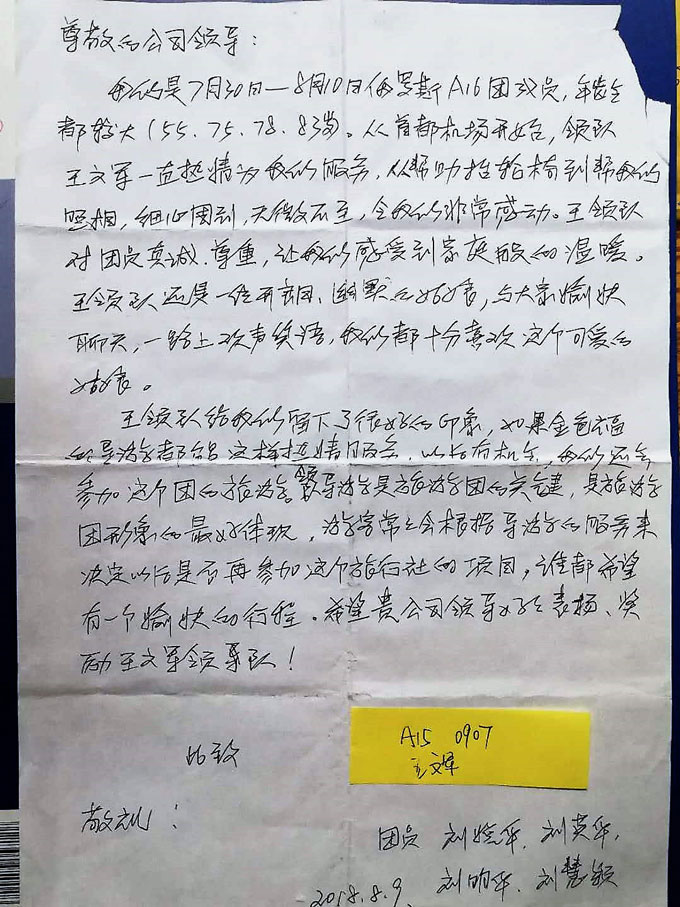 尊敬的公司领导：
我们是7月30日—8月10日俄罗斯A16团成员，年龄全
都较大（55、75、78、83岁）。从首都机场开始，领队
王文军一直热情为我们服务，从帮助推轮椅到帮我们
照相，细心周到，无微不至，令我们非常感动。王领队
对团员真诚、尊重，让我们感受到家庭般的温暖。
王领队还是一位开朗、幽默的姑娘，与大家愉快
聊天，一路上欢声笑语，我们都十分喜欢这个可爱的
姑娘。
王领队给我们留下了很好的印象，如果金色幸福
的导游都是这样热情服务，以后有机会，我们还会
参加这个团的旅游。领导游是旅游团的关键，是旅游
团形象的最好体现，游客常常会根据导游的服务来
决定以后是否再参加这个旅行社的项目，谁都希望
有一个愉快的行程。希望贵公司领导好好表扬、奖
励王文军领导队！
此致
A15 0907
王文军
敬礼！
团员 刘 华、刘英华、
2018.8.9. 刘明华、刘慧颖